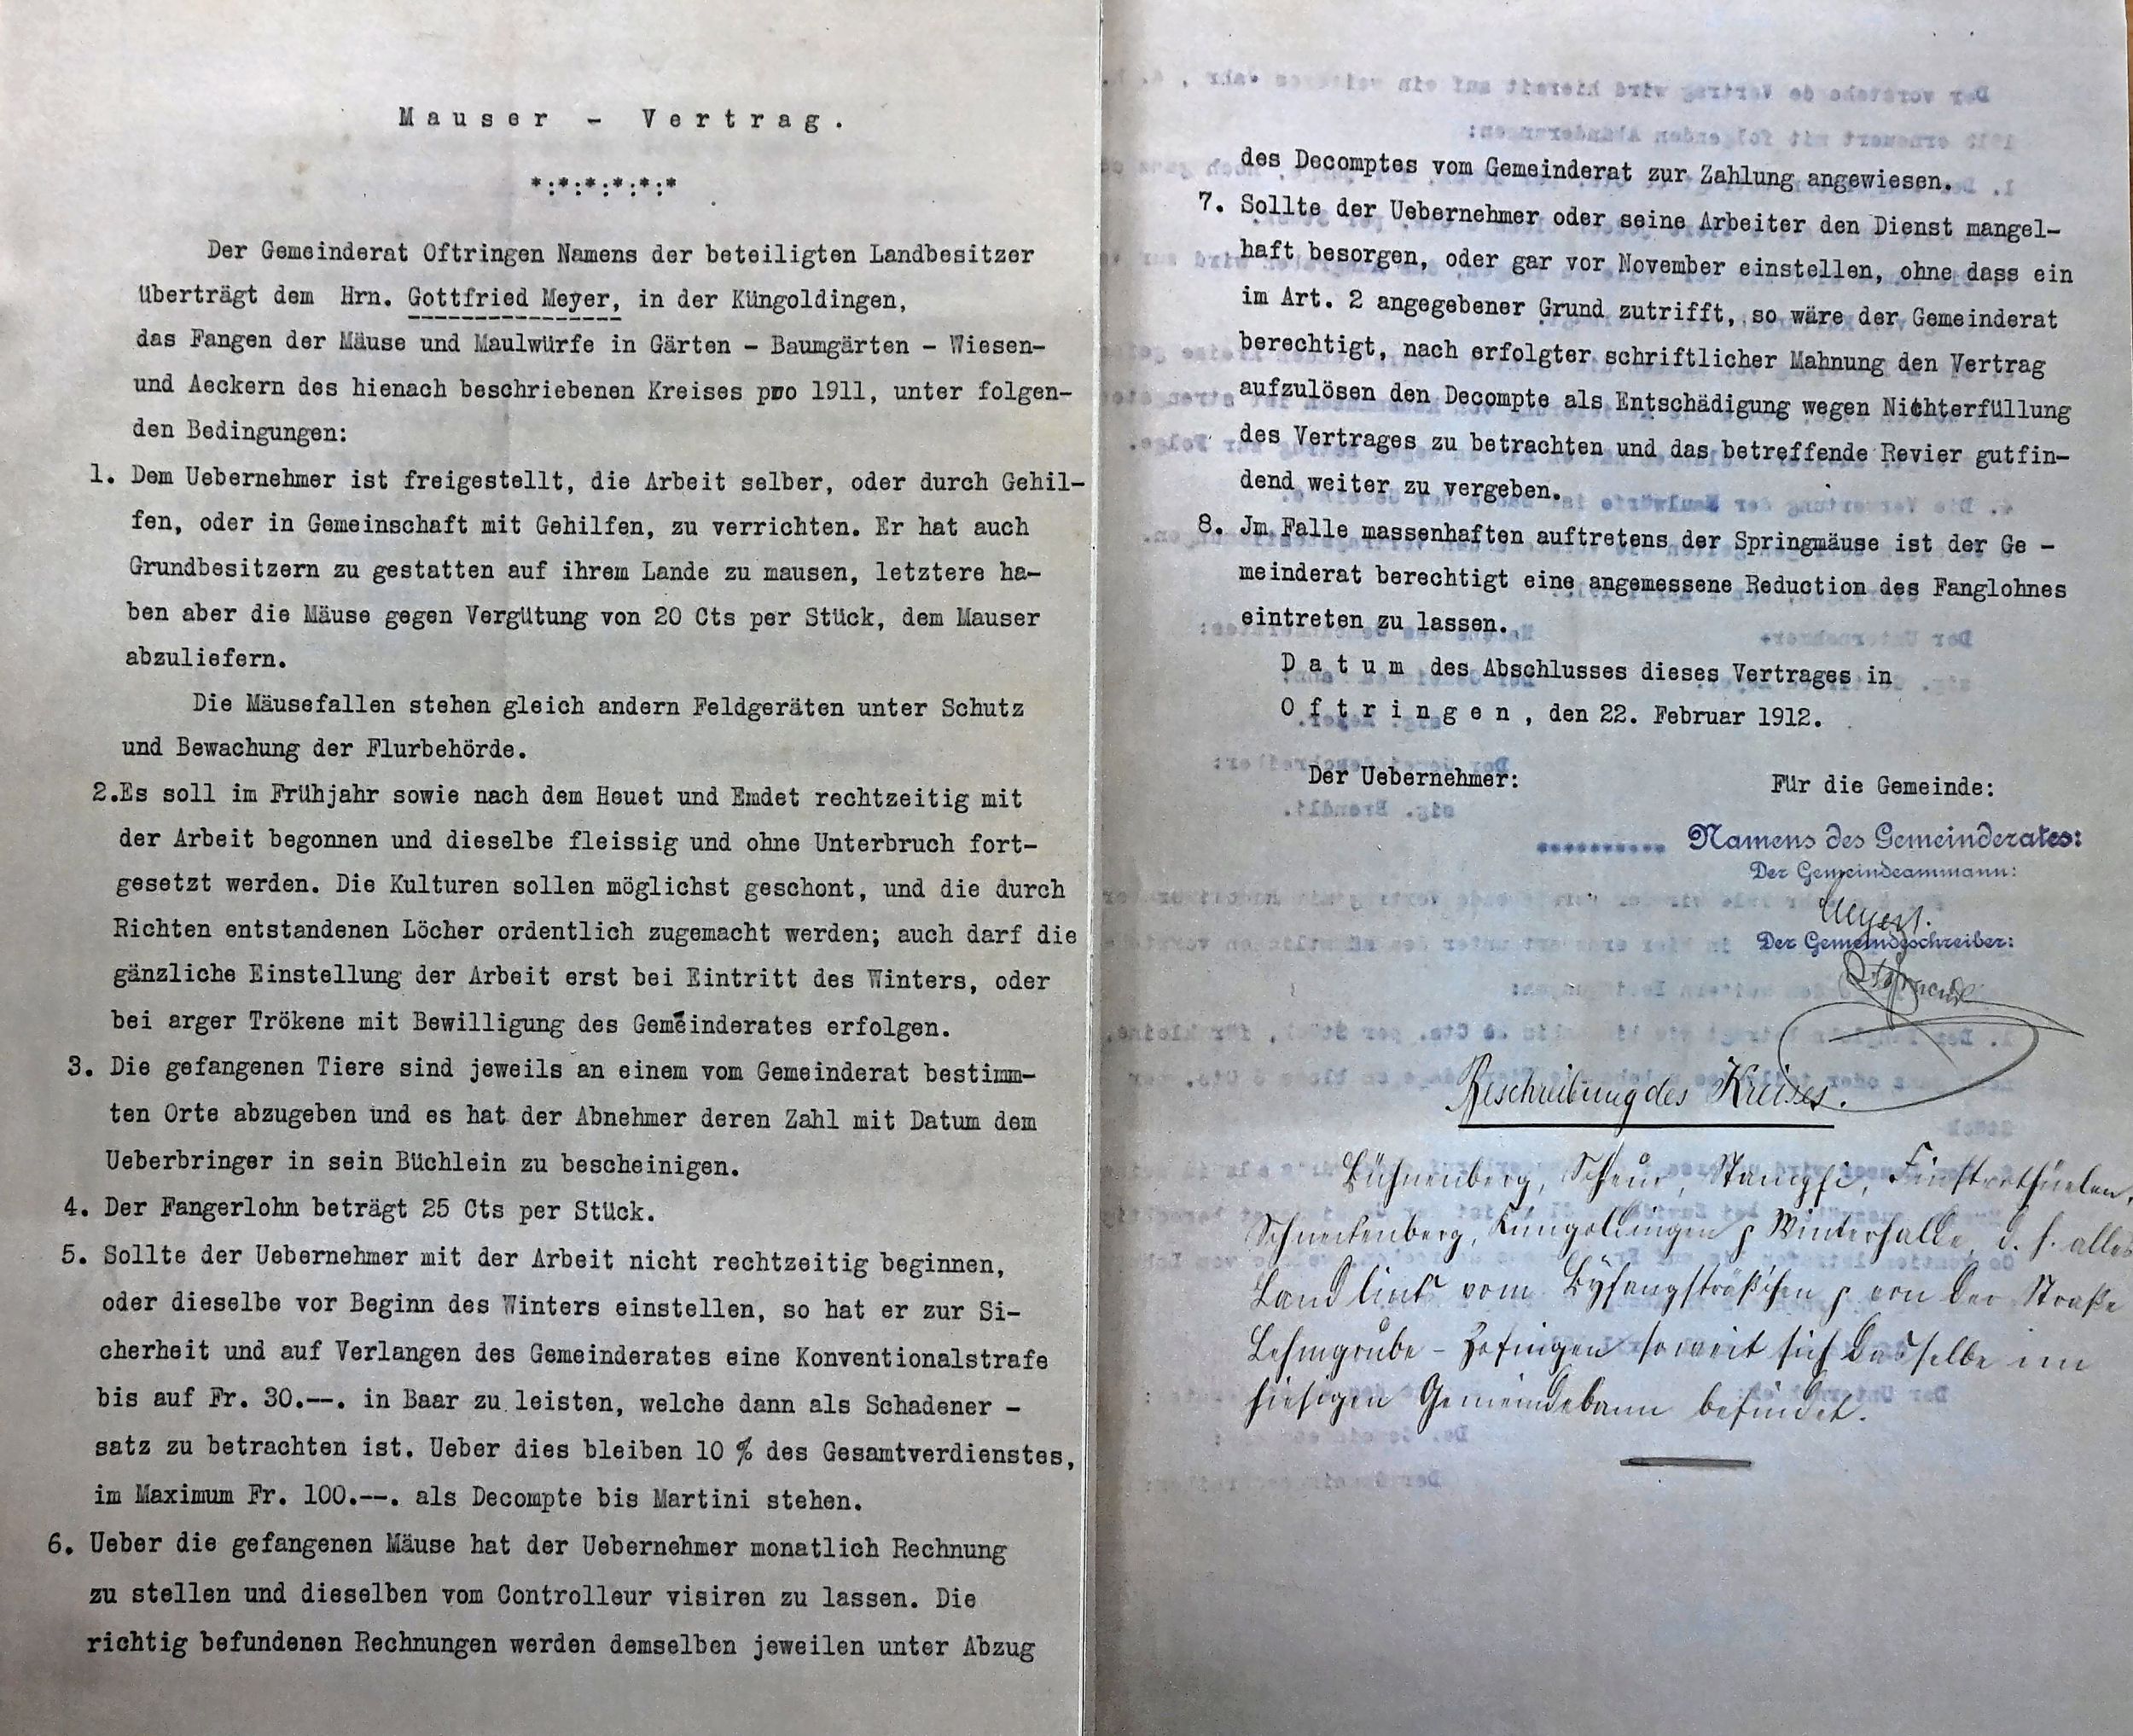 Mauser - Vertrag.
*:*:*:*:*:*
Der Gemeinderat Oftringen Namens der beteiligten Landbesitzer
überträgt dem Hrn. Gottfried Meyer, in der Küngoldingen,
das Fangen der Mäuse und Maulwürfe in Gärten - Baumgärten - Wiesen-
und Aeckern des hienach beschriebenen Kreises pro 1911, unter folgen-
den Bedingungen:
1. Dem Uebernehmer ist freigestellt, die Arbeit selber, oder durch Gehil-
fen, oder in Gemeinschaft mit Gehilfen, zu verrichten. Er hat auch
Grundbesitzern zu gestatten auf ihrem Lande zu mausen, letztere ha-
ben aber die Mäuse gegen Vergütung von 20 Cts per Stück, dem Mauser
abzuliefern.
Die Mäusefallen stehen gleich andern Feldgeräten unter Schutz
und Bewachung der Flurbehörde.
2.Es soll im Frühjahr sowie nach dem Heuet und Emdet rechtzeitig mit
der Arbeit begonnen und dieselbe fleissig und ohne Unterbruch fort-
gesetzt werden. Die Kulturen sollen möglichst geschont, und die durch
Richten entstandenen Löcher ordentlich zugemacht werden; auch darf die
gänzliche Einstellung der Arbeit erst bei Eintritt des Winters, oder
bei arger Trökene mit Bewilligung des Gemeinderates erfolgen.
3. Die gefangenen Tiere sind jeweils an einem vom Gemeinderat bestimm-
ten Orte abzugeben und es hat der Abnehmer deren Zahl mit Datum dem
Ueberbringer in sein Büchlein zu bescheinigen.
4. Der Fangerlohn beträgt 25 Cts per Stück.
5. Sollte der Uebernehmer mit der Arbeit nicht rechtzeitig beginnen,
oder dieselbe vor Beginn des Winters einstellen, so hat er zur Si-
cherheit und auf Verlangen des Gemeinderates eine Konventionalstrafe
bis auf Fr. 30.--. in Baar zu leisten, welche dann als Schadener -
satz zu betrachten ist. Ueber dies bleiben 10 % des Gesamtverdienstes,
im Maximum Fr. 100.--. als Decompte bis Martini stehen.
6. Ueber die gefangenen Mäuse hat der Uebernehmer monatlich Rechnung
zu stellen und dieselben vom Controlleur visiren zu lassen. Die
richtig befundenen Rechnungen werden demselben jeweilen unter Abzug
des Decomptes vom Gemeinderat zur Zahlung angewiesen.
7. Sollte der Uebernehmer oder seine Arbeiter den Dienst mangel-
haft besorgen, oder gar vor November einstellen, ohne dass ein
im Art. 2 angegebener Grund zutrifft, so wäre der Gemeinderat
berechtigt, nach erfolgter schriftlicher Mahnung den Vertrag
aufzulösen den Decompte als Entschädigung wegen Nichterfüllung
des Vertrages zu betrachten und das betreffende Revier gutfin-
dend weiter zu vergeben.
8. Jm Falle massenhaften auftretens der Springmäuse ist der Ge -
meinderat berechtigt eine angemessene Reduction des Fanglohnes
eintreten zu lassen.
Datum des Abschlusses dieses Vertrages in
Oftringen, den 22. Februar 1912.
Der Uebernehmer: Für die Gemeinde:
Namens des Gemeinderates:
Der Gemeindeammann:
Der Gemeindeschreiber:
Beschreibung des Kreises.
Bühnenberg, Scheur, Stampfi, Finsterthüelen,
Schneckenberg, Küngoldingen & Winterhalde, d. h. alles
Land links vom Byfangsträßchen & von der Straße
Lehmgrube - Zofingen soweit sich dasselbe im
hiesigen Gemeindebann befindet.